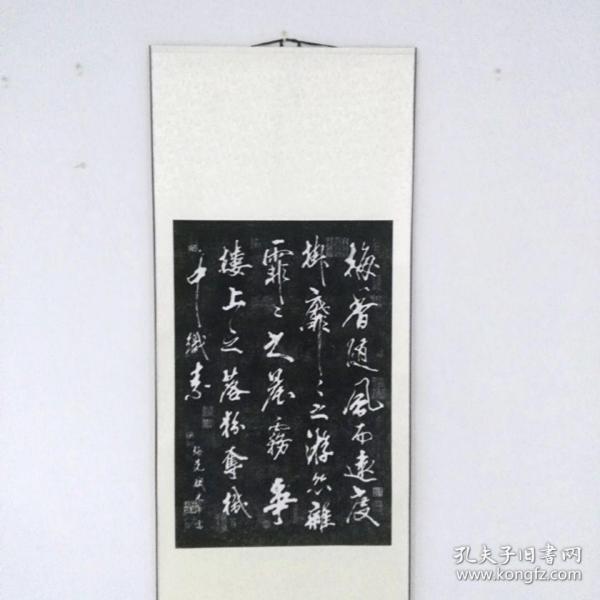 梅香随風而遠度
掛靡々之游絲雜
霏々之晨霧争
樓上之落粉奪機
中織素
孔夫子旧书网
www.kongfz.com